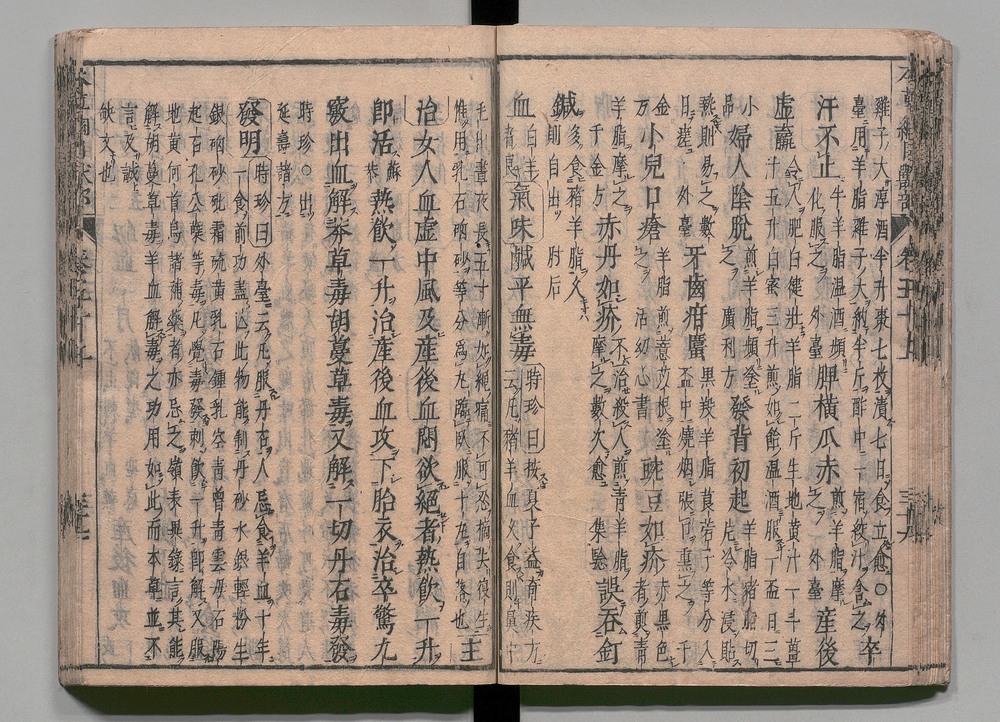 雞子大淳酒半升棗七枚漬七日食立愈○外
臺用羊脂雞子大納半斤酢中一宿絞汁含之 卒
汗不止 牛羊脂温酒頻化服之 外臺 脾横爪赤 煎羊脂摩之 外臺 産後
虚羸 令人肥白健壯羊脂二斤生地黄汁一斗薑
汁五升白蜜三升煎如飴温酒服一盃日三
小 婦人陰脱 煎羊脂頻塗之 廣利方 發背初起 羊脂猪脂切片冷水浸貼
熱則易之數日瘥 外臺 牙齒疳䘌 黒羖羊脂莨菪子等分入盃中燒烟張口熏之 千
金 小兒口瘡 羊脂煎薏苡根塗之 活幼心書 豌豆如疥 赤黒色者煎青
羊脂摩之 千金方 赤丹如疥 不治殺人煎青羊脂摩之數次愈 集驗 誤吞釘
鍼 多食猪羊脂久則自出 肘后
血 白羊者良 氣味 鹹平無毒 時珍曰按夏子益奇疾方云凡猪羊血久食則鼻中
毛出晝夜長五寸漸如繩痛不可忍摘去復生
惟用乳石硇砂等分爲丸臨臥服十丸自落也 主
治 女人血虚中風及産後血悶欲絕者熱飲一升
即活 蘇恭 熱飲一升治産後血攻下胎衣治卒驚九
竅出血解莽草毒胡蔓草毒又解一切丹石毒發
時珍○出延壽諸方
發明 時珍曰外臺云凡服丹石人忌食羊血十年
一食前功盡亡此物能制丹砂水銀輕粉生
銀硇砂砒霜硫黄乳石鍾乳空青曾青雲母石陽
起石孔公蘗等毒凡覺毒發刺飲一升即解又服
地黄何首烏諸補藥者亦忌之嶺表異錄言其能
解胡蔓草毒羊血解毒之功用如此而本草並不
言及誠缺文也